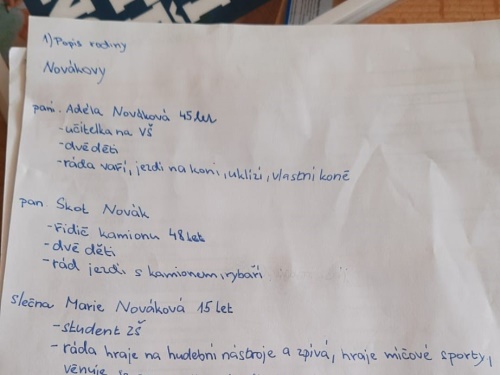 1) Popis rodiny
Novákovy
paní. Adéla Nováková 45 let
- učitelka na VŠ
- dvě děti
- ráda vaří, jezdí na koni, uklízí, vlastní koně
pan. Skot Novák
- řidič kamionu 48 let
- dvě děti
- rád jezdí s kamionem, rybaří
slečna Marie Nováková 15 let
- student ZŠ
- ráda hraje na hudební nástroje a zpívá, hraje míčové sporty,
věnuje